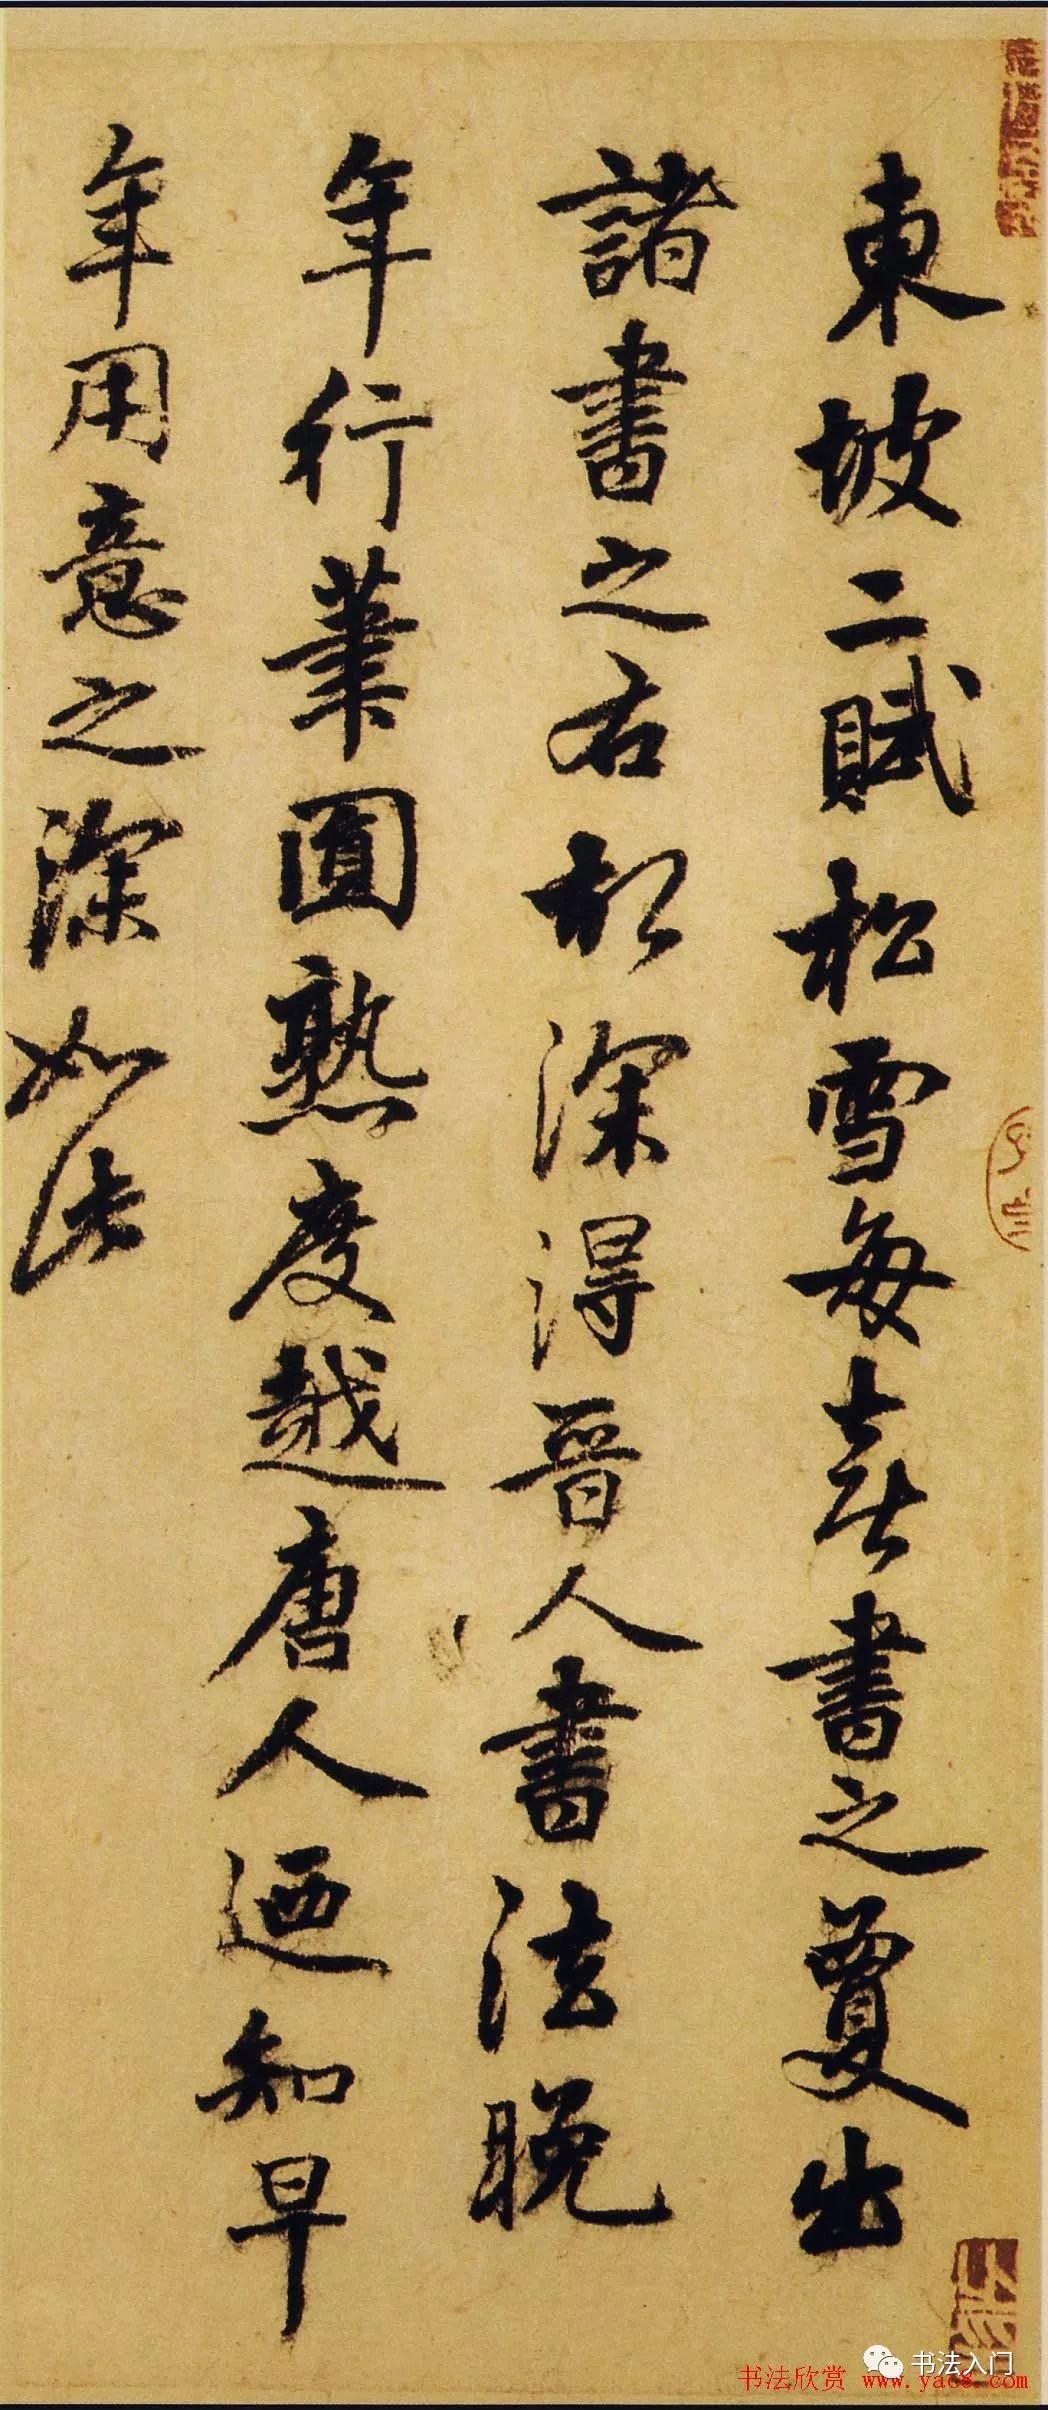 東坡二賦松雪每喜書之夐出
諸書之右初深得晉人書法晚
年行筆圓熟度越唐人迺知早
年用意之深如此
书法入门
书法欣赏 www.yac8.com